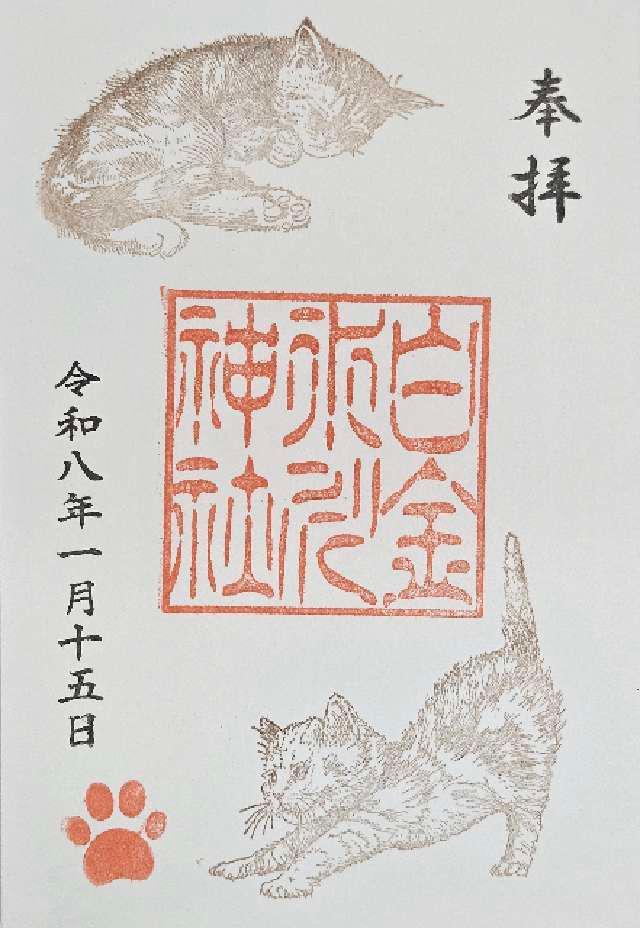 奉拝
白金
氷川
神社
令和八年一月十五日